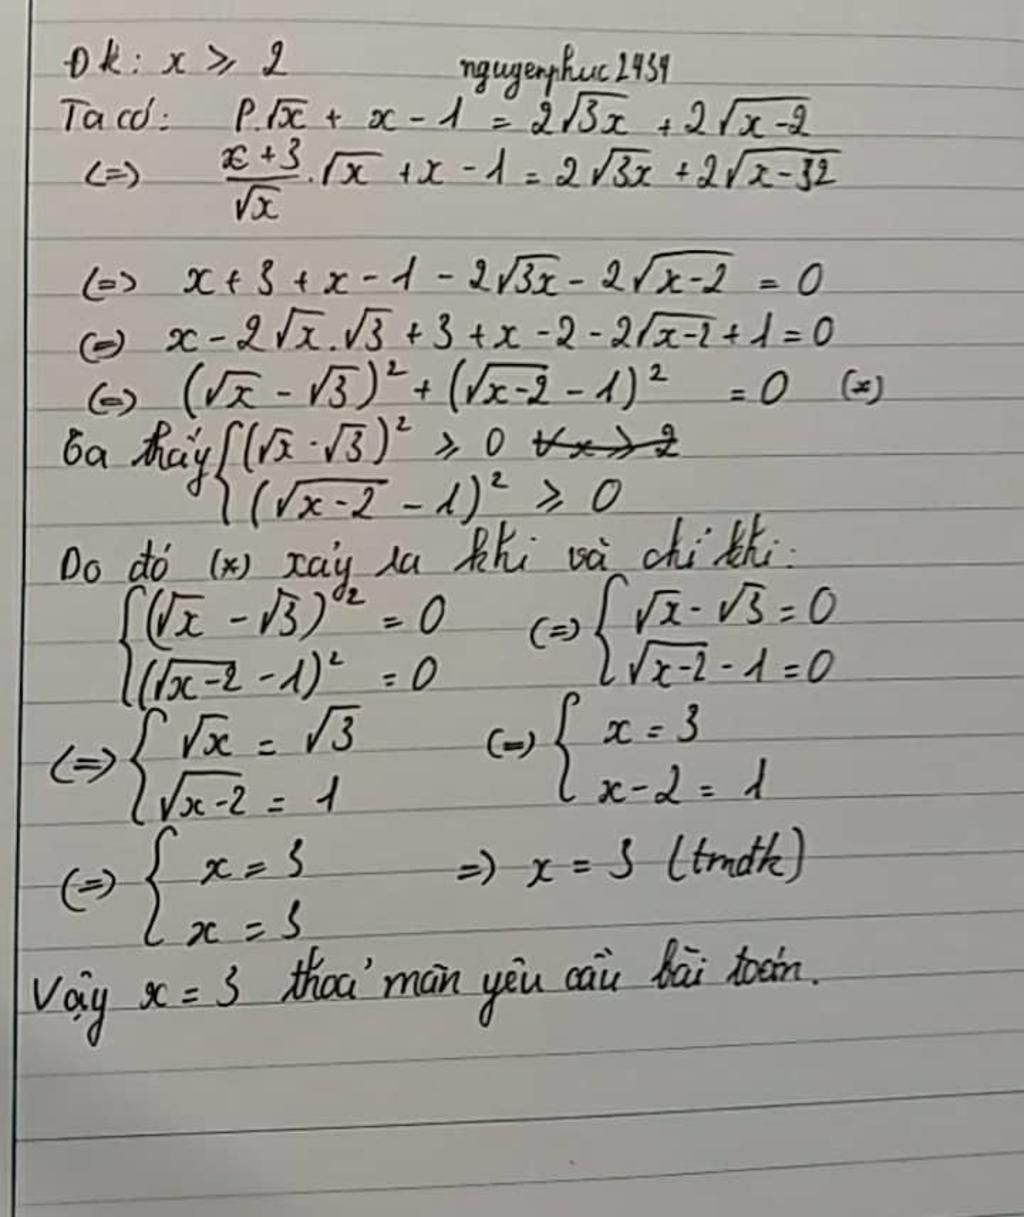 Đk: x ⩾ 2 nguyenphuc2434
Ta có: P.√x + x - 1 = 2√3x + 2√x-2
(=) x+3/√x . √x + x - 1 = 2√3x + 2√x-32
(=) x + 3 + x - 1 - 2√3x - 2√x-2 = 0
(=) x - 2√x.√3 + 3 + x - 2 - 2√x-2 + 1 = 0
(=) (√x - √3)² + (√x-2 - 1)² = 0 (*)
Ta thấy { (√x - √3)² ⩾ 0 ∀x ⩾ 2
(√x-2 - 1)² ⩾ 0
Do đó (*) xảy ra khi và chỉ khi:
{ (√x - √3)² = 0 (=) { √x - √3 = 0
(√x-2 - 1)² = 0 √x-2 - 1 = 0
(=) { √x = √3 (=) { x = 3
√x-2 = 1 x-2 = 1
(=) { x = 3 =) x = 3 (tmđk)
x = 3
Vậy x = 3 thoả mãn yêu cầu bài toán.